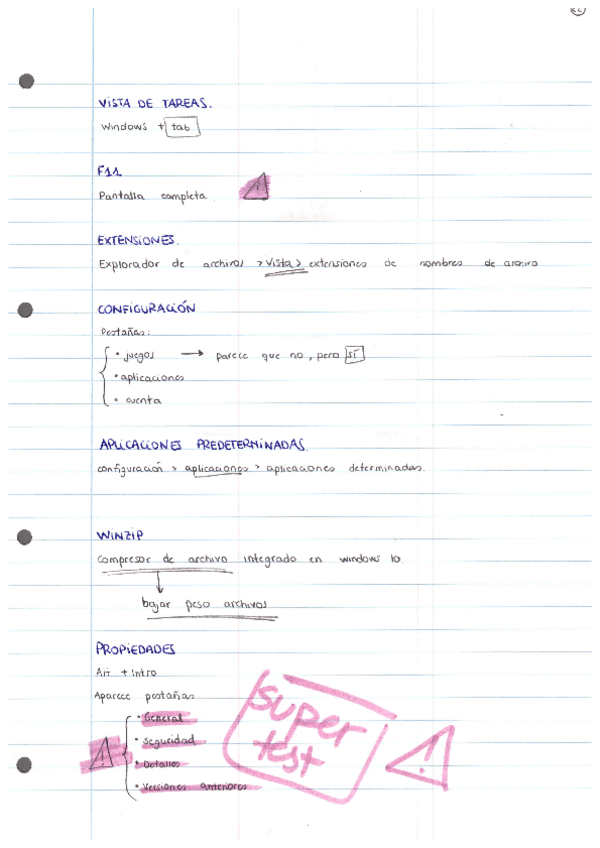 VISTA DE TAREAS.
Windows + tab
F11
Pantalla completa
!
EXTENSIONES.
Explorador de archivos > Vista > extensiones de nombres de archivo
CONFIGURACIÓN
Pestañas:
• juegos → parece que no, pero SÍ
• aplicaciones
• cuenta
APLICACIONES PREDETERMINADAS.
configuración > aplicaciones > aplicaciones determinadas.
WINZIP
compresor de archivo integrado en windows 10
bajar peso archivos
PROPIEDADES
Alt + Intro
Aparece pestañas
• General
• Seguridad
• Detalles
! • Versiones anteriores
super
test
!